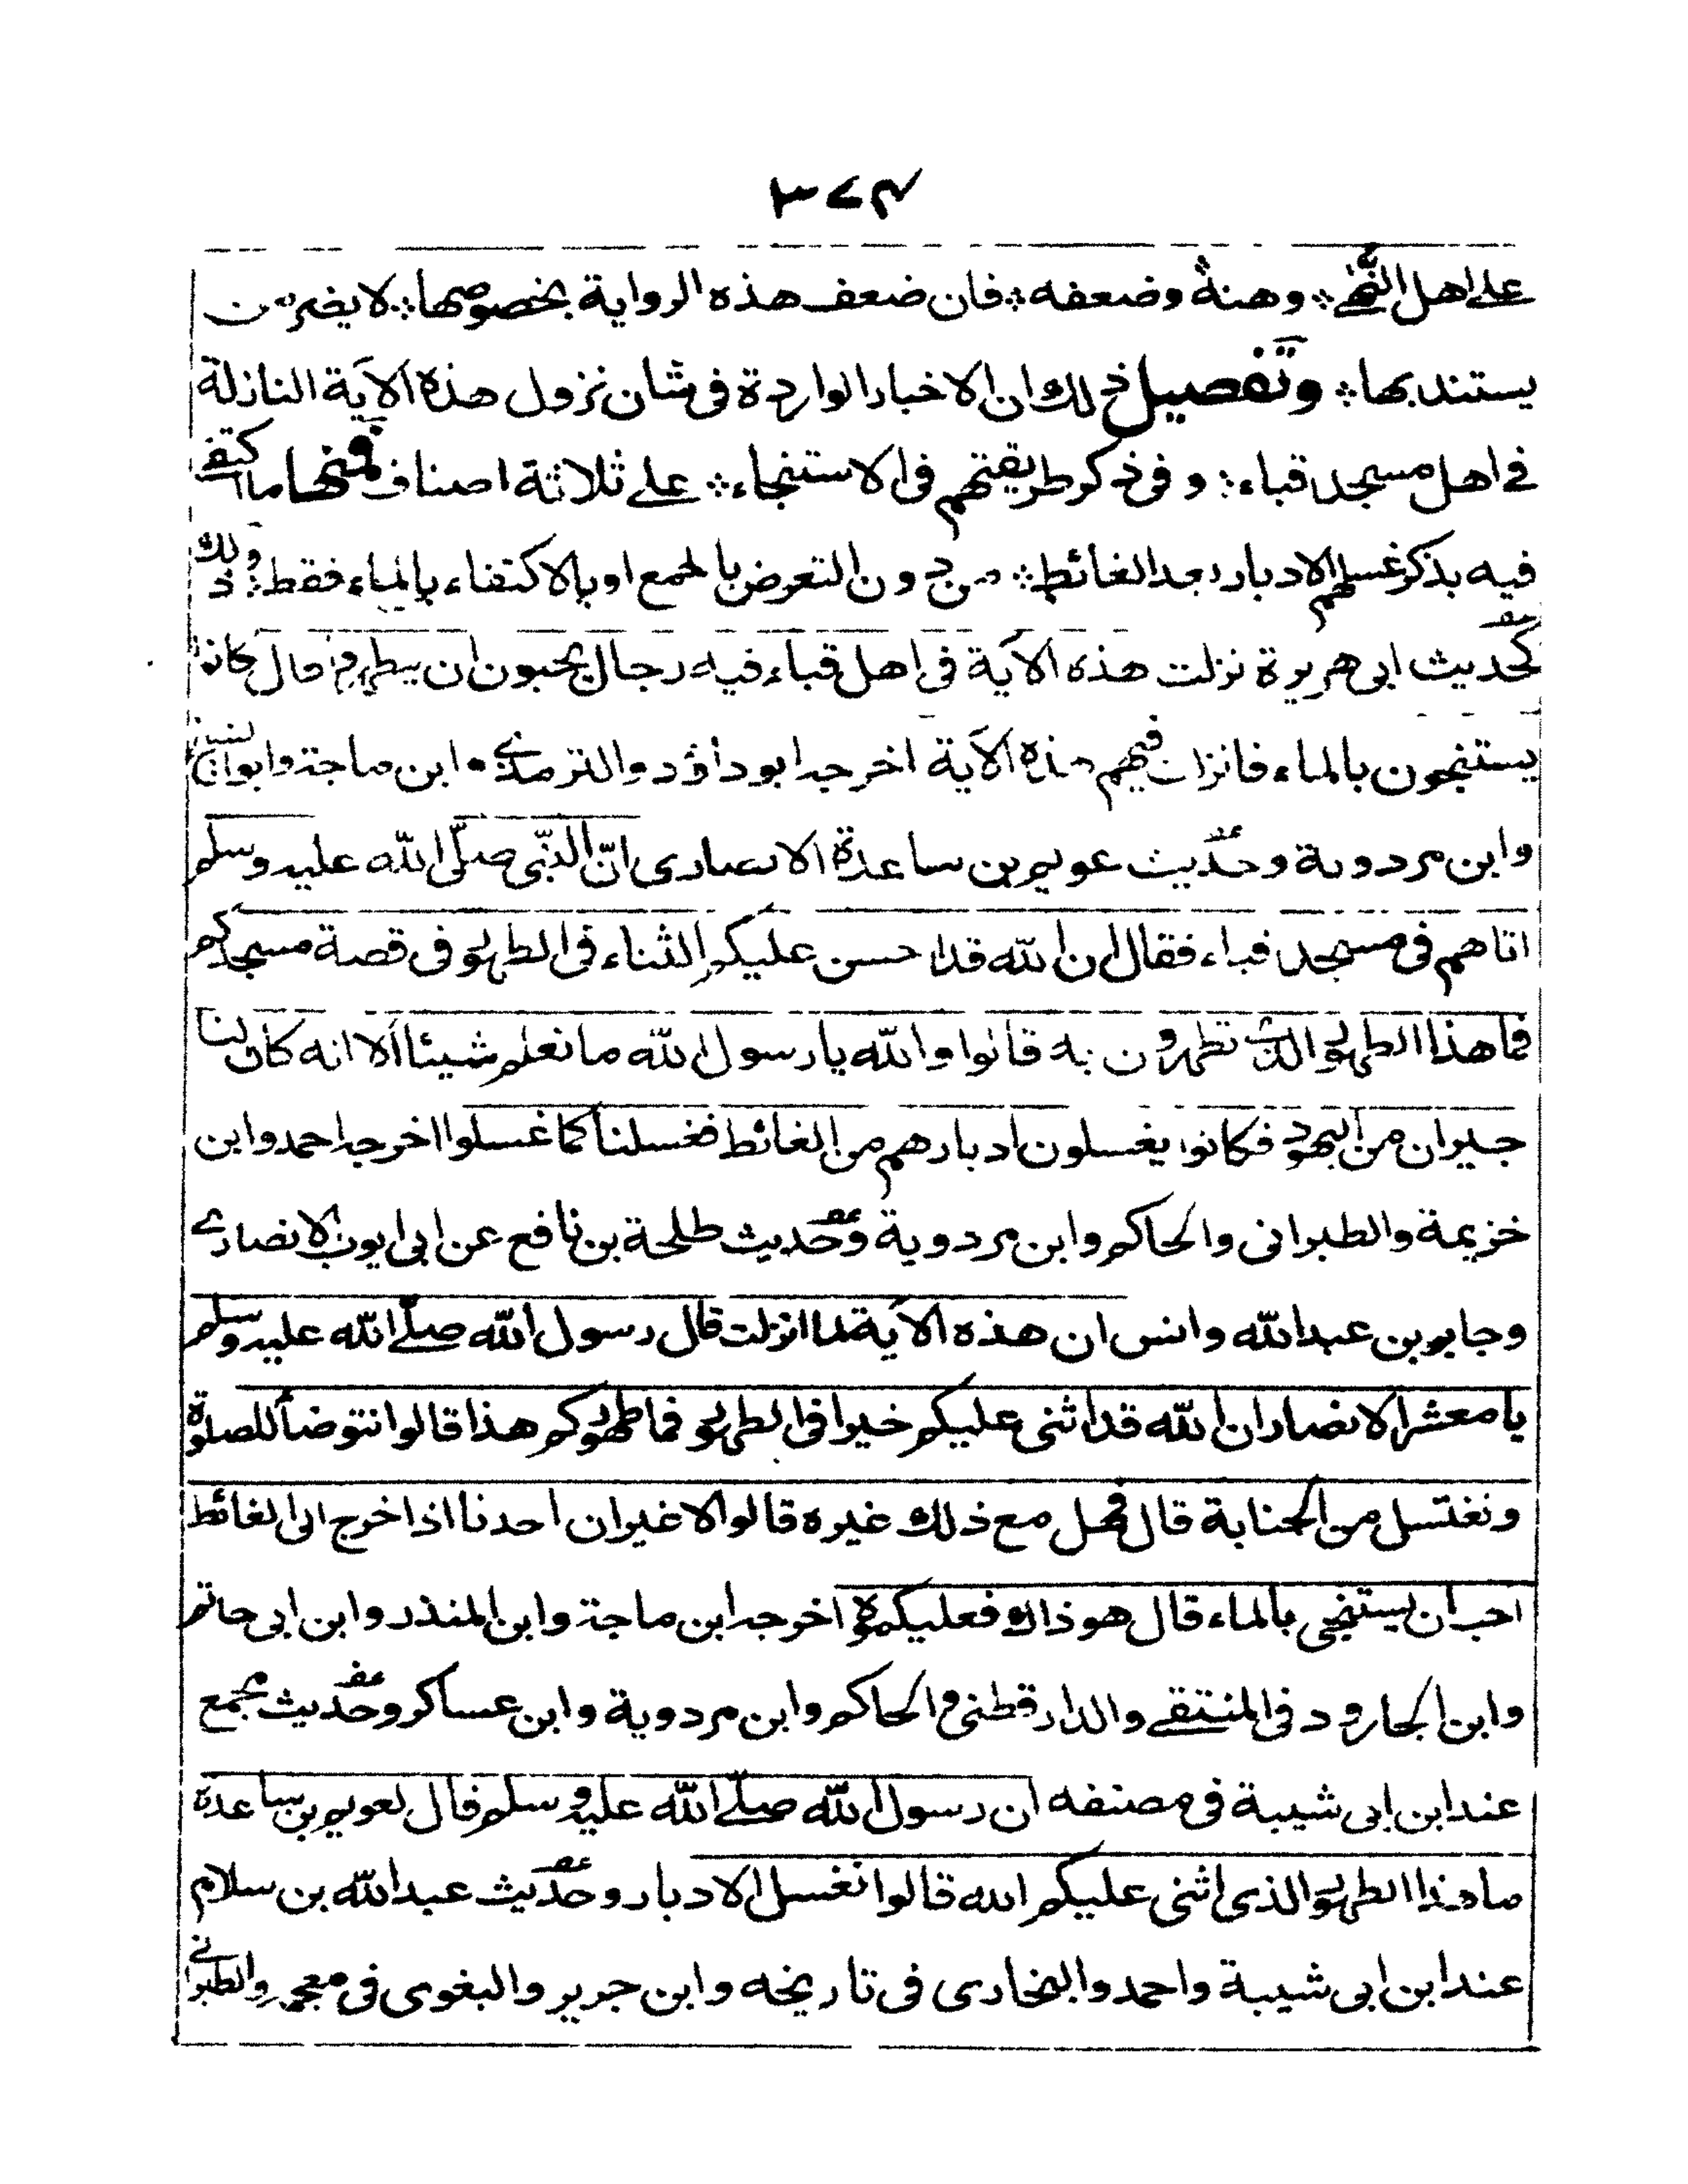 ۳۷۴
على اهل النُّهٰى؞ وهنهٗ وضعفه؞ فان ضعف هذه الرواية بخصوصها؞ لا يضر من
يستند بها؞ وتفصيل ذلك ان الاخبار الواردة فى شان نزول هذه الآية النازلة
فى اهل مسجد قباء؞ و فى ذكر طريقتهم فى الاستنجاء؞ على ثلاثة اصناف فمنها ما اكتفى
فيه بذكر غسلهم الادبار بعد الغائط؞ من دون التعرض بالجمع او بالاكتفاء بالماء فقط؞ وذلك
كحديث ابى هريرة نزلت هذه الآية فى اهل قباء فيه رجال يحبون ان يتطهروا قال كانوا
يستنجون بالماء فانزلت فيهم هذه الآية اخرجه ابو داؤد والترمذى وابن ماجة وابو الشيخ
وابن مردوية وحديث عويم بن ساعدة الانصارى انّ النّبى صلّى الله عليه وسلم
اتاهم فى مسجد قباء فقال ان الله قد احسن عليكم الثناء فى الطهور فى قصة مسجدكم
فما هذا الطهور الذى تطهرون به قالوا والله يا رسول الله ما نعلم شيئا الا انه كان لنا
جيران من اليهود فكانوا يغسلون ادبارهم من الغائط فغسلنا كما غسلوا اخرجه احمد وابن
خزيمة والطبرانى والحاكم وابن مردوية وحديث طلحة بن نافع عن ابى ايوب الانصارى
وجابر بن عبد الله وانس ان هذه الآية لما انزلت قال رسول الله صلّى الله عليه وسلم
يا معشر الانصار ان الله قد اثنى عليكم خيرا فى الطهور فما طهوركم هذا قالوا نتوضأ للصلوة
ونغتسل من الجنابة قال فهل مع ذلك غيره قالوا لا غير ان احدنا اذا خرج الى الغائط
احب ان يستنجى بالماء قال هو ذاك فعليكموه اخرجه ابن ماجة وابن المنذر وابن ابى حاتم
وابن الجارود فى المنتقى والدارقطنى والحاكم وابن مردوية وابن عساكر وحديث مجمع
عند ابن ابى شيبة فى مصنفه ان رسول الله صلّى الله عليه وسلم قال لعويم بن ساعدة
ما هذا الطهور الذى اثنى عليكم الله قالوا نغسل الادبار وحديث عبد الله بن سلام
عند ابن ابى شيبة واحمد والبخارى فى تاريخه وابن جرير والبغوى فى معجمه والطبرانى